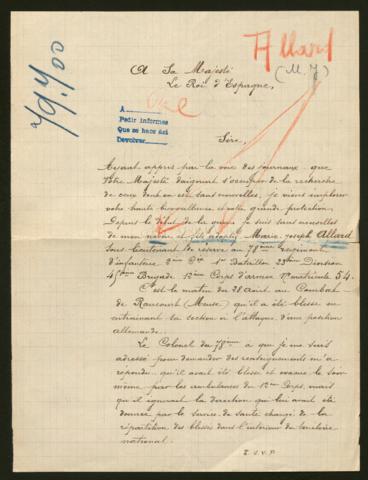 79.400
Allard
(M. J)
A Sa Majesté
Le Roi d'Espagne,
A
Pedir informes
Que se hace aci
Devolver
Sire,
Ayant appris par la voie des journaux que
Votre Majesté daignait s'occuper de la recherche
de ceux dont on est sans nouvelles, je viens implorer
votre haute bienveillance et votre grande protection.
Depuis le début de la guerre je suis sans nouvelles
de mon neveu et fils adoptif Marie Joseph Allard
sous-lieutenant de réserve au 78ème régiment
d'infanterie 2ème Cie 1er Bataillon 23ème Division
45ème Brigade 12ème Corps d'armée Nº matricule 54.
C'est le matin du 28 Août au Combat
de Raucourt (Meuse) qu'il a été blessé en
entrainant sa section à l'attaque d'une position
allemande.
Le Colonel du 78ème à qui je me suis
adressé pour demander des renseignements m'a
répondu qu'il avait été blessé et évacué le soir
même par les ambulances du 12ème Corps, mais
qu'il ignorait la direction qui lui avait été
donnée par le service de santé chargé de la
répartition des blessés dans l'intérieur du territoire
national.
T. S. V. P.